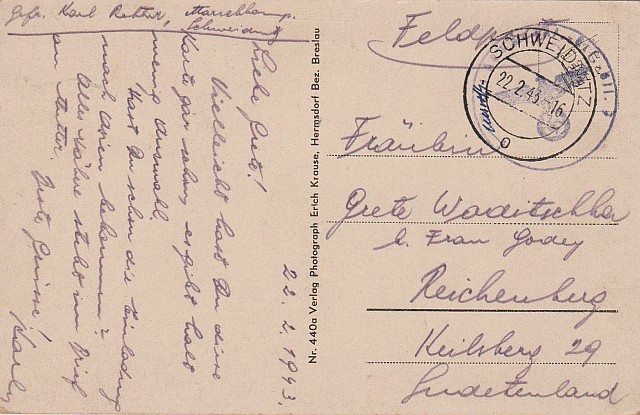 Gefr. Karl Retter, Marschkomp.
Schweidnitz
22.2.1943
Liebe Grete!
Vielleicht hast Du diese
Karte gar schon, es gibt halt
wenig Auswahl.
Hast Du schon die Einladung
nach Wien bekommen?
Alles Nähere steht im Brief
an Mutter.
Beste Grüsse
Karl
Nr. 440a Verlag Photograph Erich Krause, Hermsdorf Bez. Breslau
Feldpost
SCHWEIDNITZ
22.2.43.-16
Fräulein
Grete Woditschka
b. Frau Godey
Reichenberg
Keilsberg 29
Sudetenland